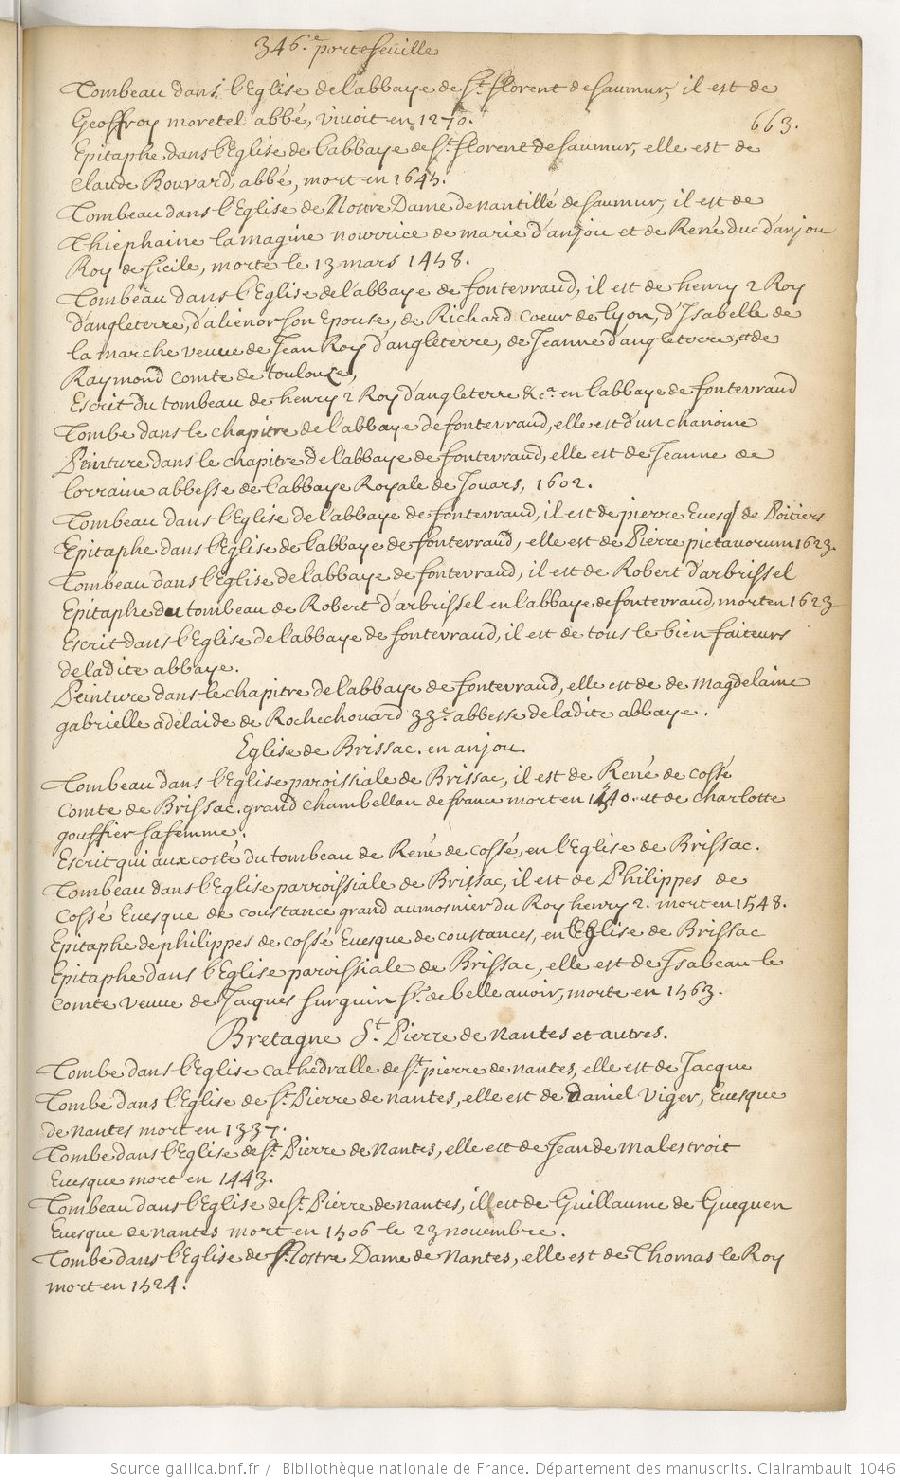 346.e portefeuille
Tombeau dans l'Eglise de l'abbaye de St. florent de saumur, il est de
Geoffroy moretel abbé, vivoit en 1270.
663.
Epitaphe dans l'Eglise de l'abbaye de St. florent de saumur, elle est de
Claude Bouvard, abbé, mort en 1645.
Tombeau dans l'Eglise de Nostre Dame de nantillé de saumur, il est de
Thiephaine la magine nourrice de marie d'anjou et de René duc d'anjou
Roy de sicile, morte le 13 mars 1458.
Tombeau dans l'Eglise de l'abbaye de fontevraud, il est de henry 2 Roy
d'angleterre, d'alienor son Epouse, de Richard coeur de lyon, d'Isabelle de
la marche veuue de Jean Roy d'angleterre, de Jeanne d'angleterre, et de
Raymond comte de toulouze,
Escrit du tombeau de henry 2 Roy d'angleterre &c.a en l'abbaye de fontevraud
Tombe dans le chapitre de l'abbaye de fontevraud, elle est d'un chanoine
Peinture dans le chapitre de l'abbaye de fontevraud, elle est de Jeanne de
lorraine abbesse de l'abbaye Royale de Jouars, 1602.
Tombeau dans l'Eglise de l'abbaye de fontevraud, il est de pierre Euesq de Poitiers
Epitaphe dans l'Eglise de l'abbaye de fontevraud, elle est de Pierre pictavorum 1623.
Tombeau dans l'Eglise de l'abbaye de fontevraud, il est de Robert d'arbrissel
Epitaphe du tombeau de Robert d'arbrissel en l'abbaye de fontevraud, mort en 1623
Escrit dans l'Eglise de l'abbaye de fontevraud, il est de tous le bien faiteurs
de ladite abbaye.
Peinture dans le chapitre de l'abbaye de fontevraud, elle est de de Magdelaine
gabrielle adelaide de Rochechouard 33e. abbesse de ladite abbaye.
Eglise de Brissac. en anjou
Tombeau dans l'Eglise paroissiale de Brissac, il est de René de cossé
comte de Brissac, grand chambellan de france mort en 1540. et de charlotte
gouffier sa femme.
Escrit qui aux costé du tombeau de René de cossé, en l'Eglise de Brissac.
Tombeau dans l'Eglise parroissiale de Brissac, il est de Philippes de
Cossé Euesque de coustance grand aumosnier du Roy henry 2. mort en 1548.
Epitaphe de philippes de cossé Euesque de coustances, en l'Eglise de Brissac
Epitaphe dans l'Eglise paroissiale de Brissac, elle est de Isabeau le
comte veuue de Jaques surguin Sr. de belle auoir, morte en 1563.
Bretagne St. Pierre de nantes et autres.
Tombe dans l'Eglise cathedralle de St. pierre de nantes, elle est de Jacque
Tombe dans l'Eglise de St. Pierre de nantes, elle est de Daniel viger, Euesque
de nantes mort en 1337.
Tombe dans l'Eglise de St. Pierre de nantes, elle est de Jean de malestroit
Euesque mort en 1443.
Tombeau dans l'Eglise de St. Pierre de nantes, il est de Guillaume de Guequen
Euesque de nantes mort en 1506 le 23 novembre.
Tombe dans l'Eglise de Nostre Dame de nantes, elle est de Thomas le Roy
mort en 1524.
Source gallica.bnf.fr / Bibliothèque nationale de France. Département des manuscrits. Clairambault 1046